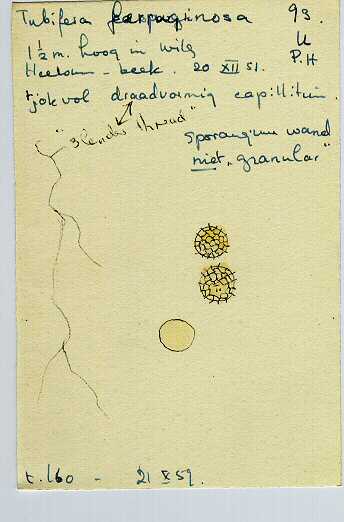 Tubifera ferruginosa 93.
U
1 ½ m. hoog in wilg P.H
Heelsum - beek. 20 XII 51.
tjokvol draadvormig capillitium.
"slender thread"
sporangium wand
niet "granular"
t. 160 - 21 X 59.